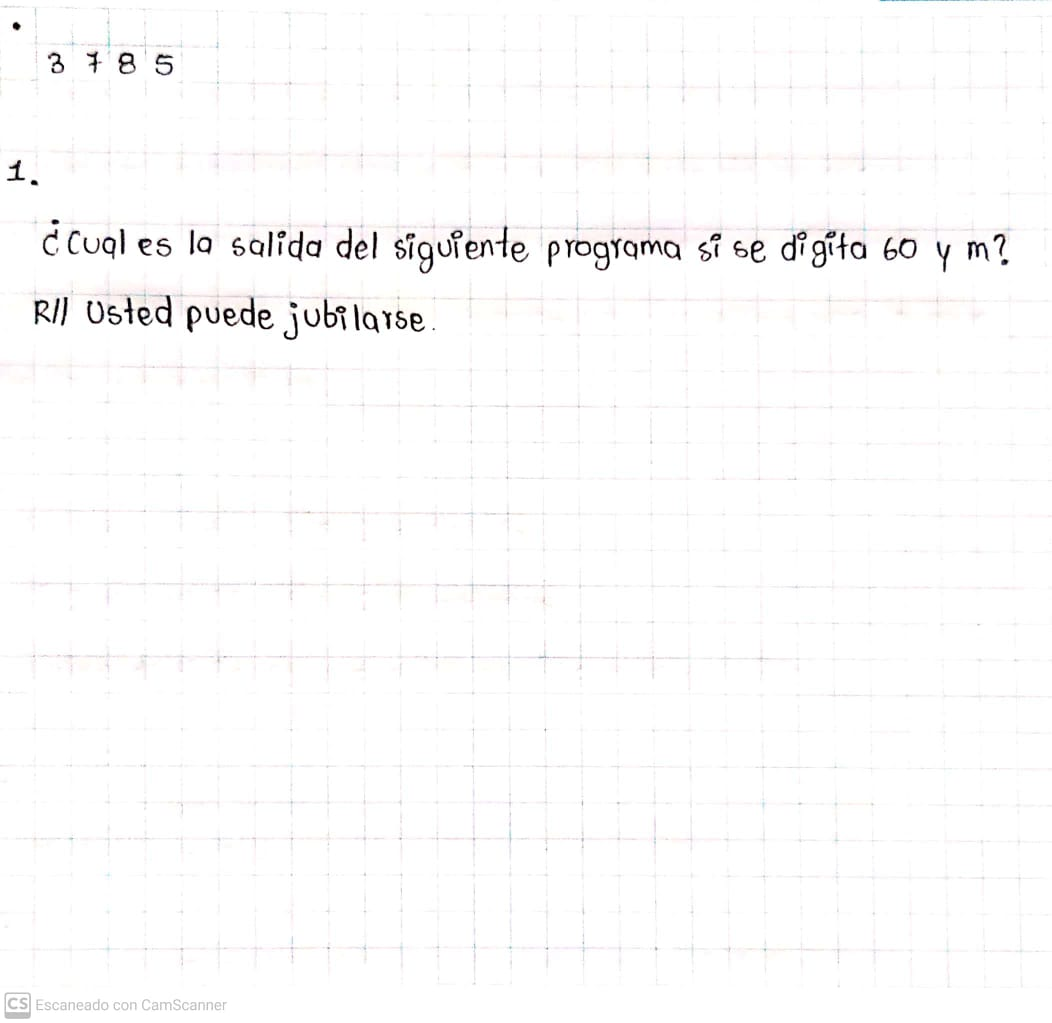 3 7 8 5
1.
¿Cual es la salida del siguiente programa si se digita 60 y m?
R// Usted puede jubilarse.
CS Escaneado con CamScanner